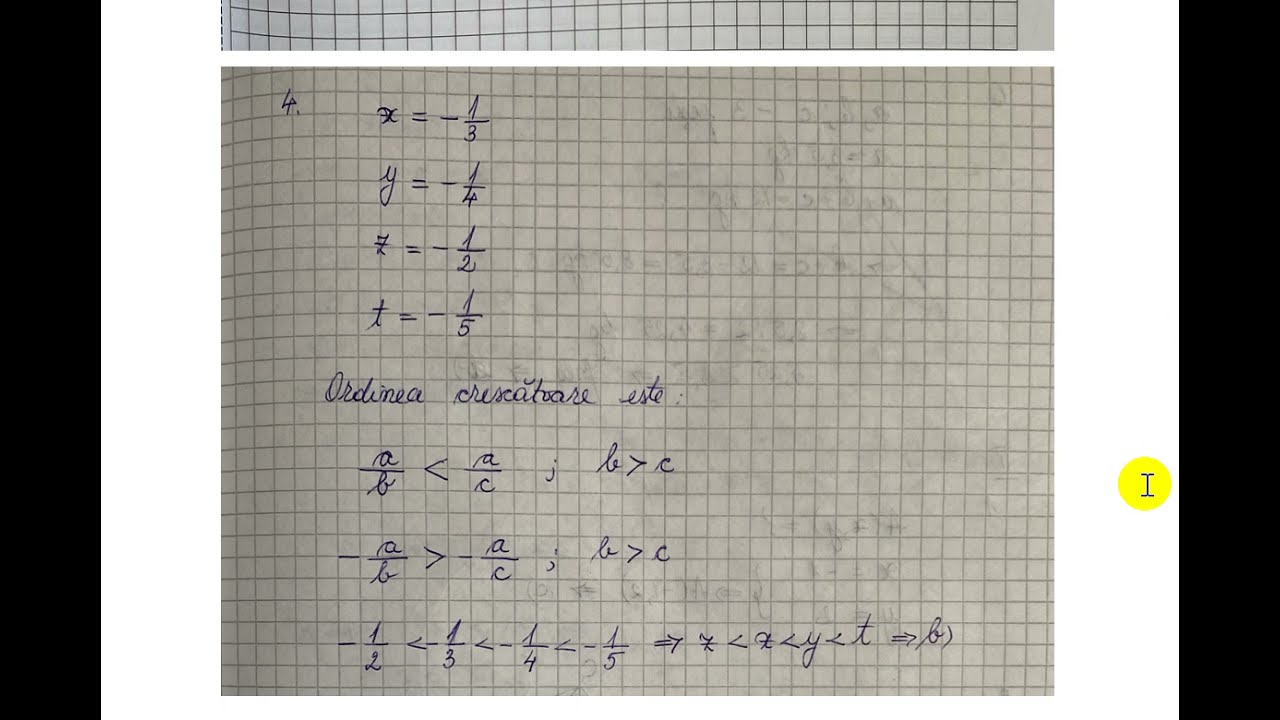 4. x = -1/3
y = -1/4
z = -1/2
t = -1/5
Ordinea crescătoare este:
a/b < a/c ; b > c
-a/b > -a/c ; b > c
-1/2 < -1/3 < -1/4 < -1/5 ⇒ z < x < y < t ⇒ b)